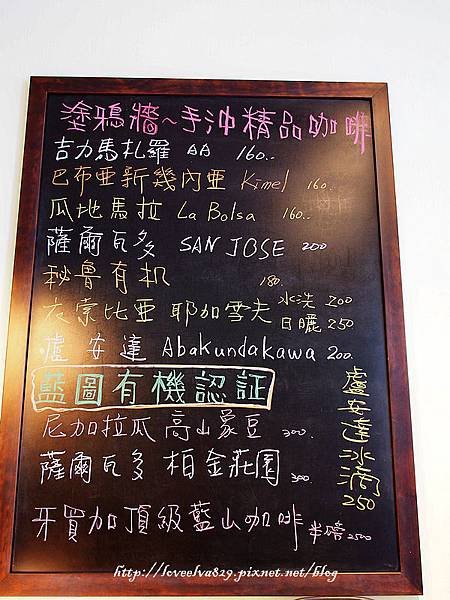 塗鴉牆~手沖精品咖啡
吉力馬札羅 AA 160..
巴布亞新幾內亞 Kimel 160.
瓜地馬拉 La Bolsa 160..
薩爾瓦多 SAN JOSE 200
秘魯有机 180.
衣索比亞 耶加雪夫 水洗 200
日曬 250
盧安達 Abakundakawa 200.
藍圖有機認証
尼加拉瓜 高山象豆 300.
薩爾瓦多 柏金莊園 300
牙買加頂級藍山咖啡 半磅 2500
盧安達冰滴 250
http://loveelva829.pixnet.net/blog